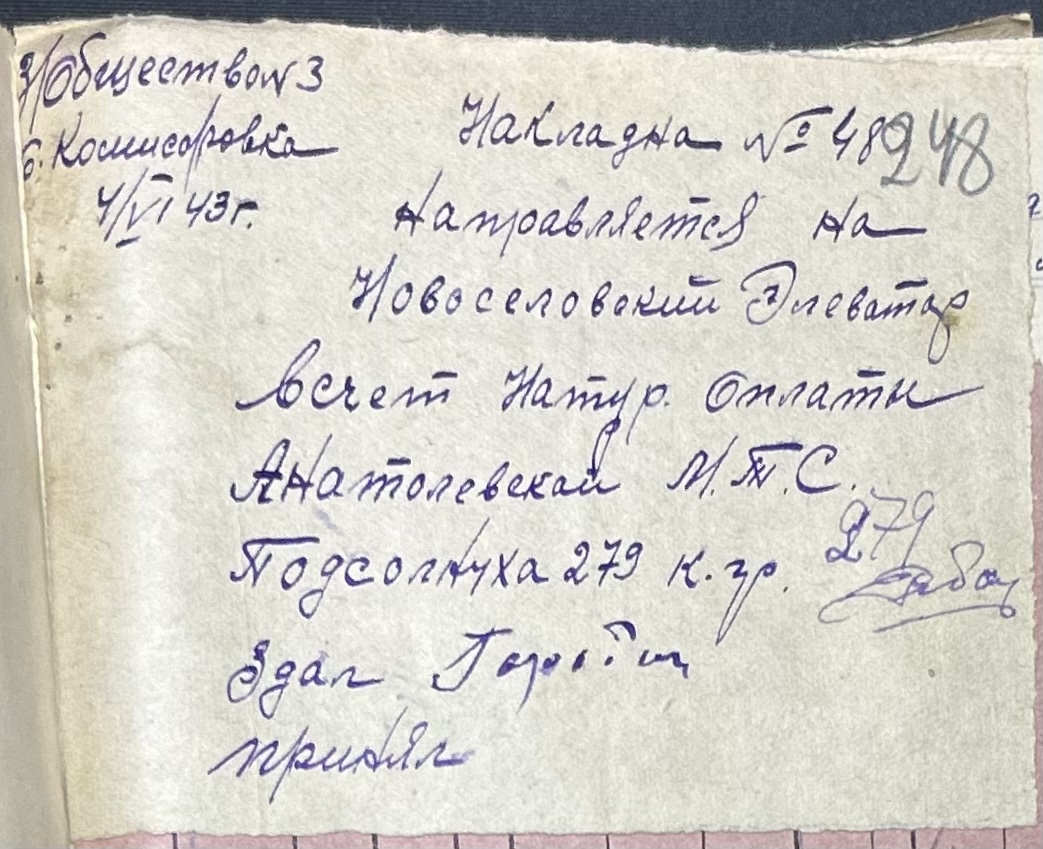 З/Общество N3
с. Комисаровка
4/VI 43 г.
Накладна № 48
248
Направляется на
Новоселовский Элеватор
всчет Натур. Оплаты
Анатолевской М.Т.С.
Подсолнуха 279 к.гр.
279
Здал
принял